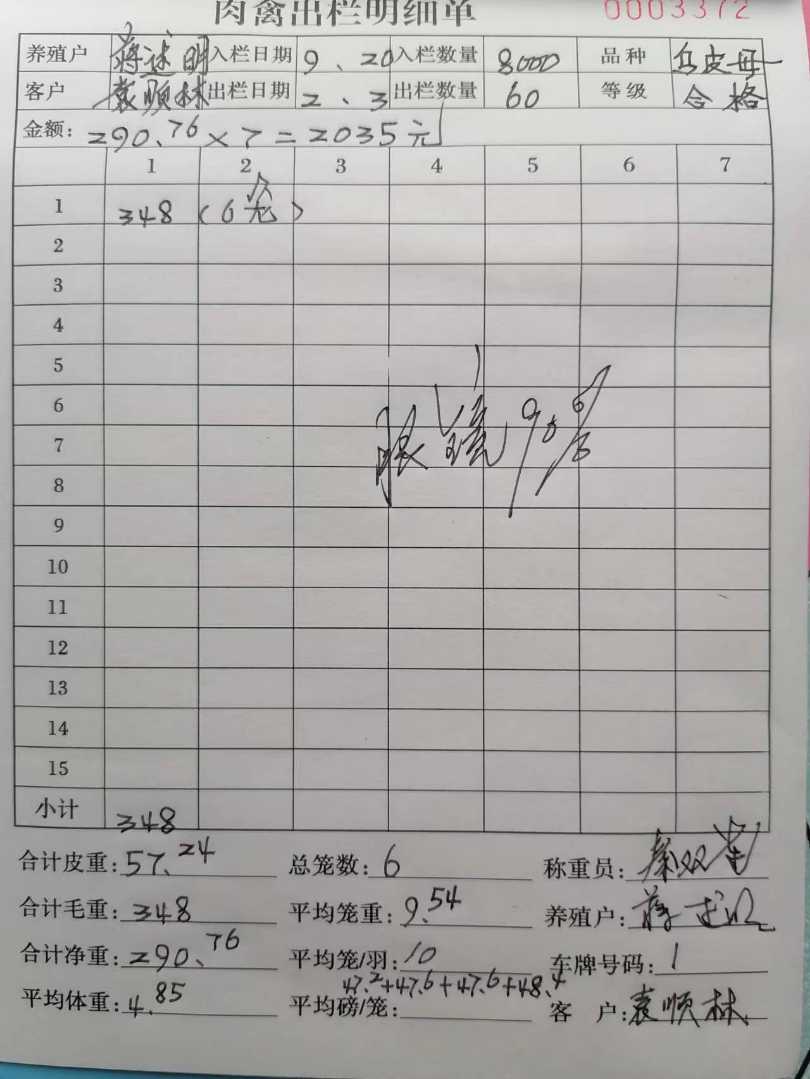 肉禽出栏明细单 0003372
养殖户 蒋述明 入栏日期 9、20 入栏数量 8000 品种 乌皮母
客户 袁顺林 出栏日期 2、3 出栏数量 60 等级 合格
金额: 290.76×7=2035元
1 2 3 4 5 6 7
1 348 (6笼)
2
3
4
5
6 眼镜90%
7
8
9
10
11
12
13
14
15
小计 348
合计皮重: 57.24 总笼数: 6 称重员: 秦双
合计毛重: 348 平均笼重: 9.54 养殖户: 蒋述明
合计净重: 290.76 平均笼/羽: 10 车牌号码: 1
47.2+47.6+47.6+48.4
平均体重: 4.85 平均磅/笼: 客户: 袁顺林